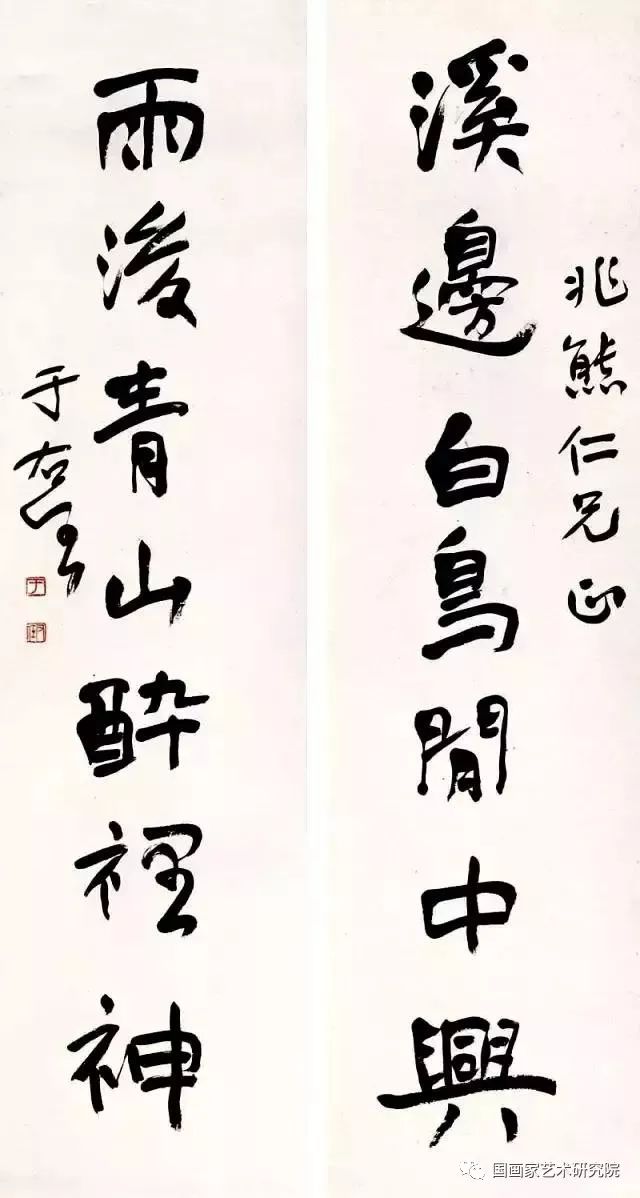 兆熊仁兄正
溪邊白鳥閒中興
雨後青山醉裡神
于右任
国画家艺术研究院